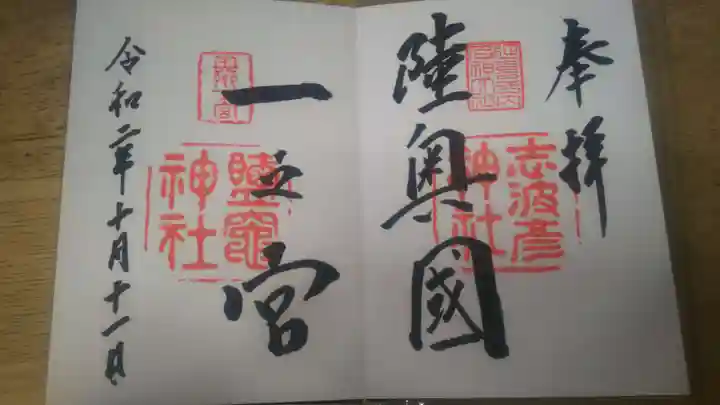 奉拝
陸奥國
志波彦
神社
一之宮
鹽竈
神社
令和二年十月十一日